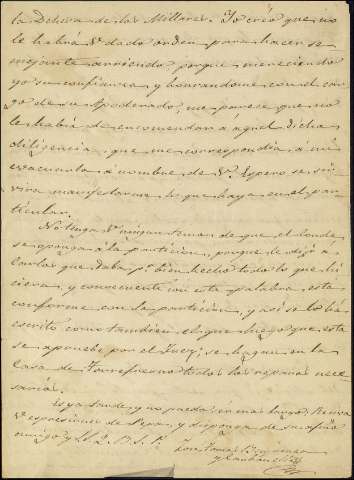 la Dehesa de los Millares. Yo creo que no
le habrá Vd. dado orden para hacer se
mejante arriendo porque mereciendo
yo su confianza y honrandome con el car
go de su Apoderado, me parece que no
le había de encomendar á aquel dicha
diligencia, que me correspondia á mi
evacuarla á nombre de Vd. Espero se sir
vira manifestarme lo que haya en el par
ticular.
No tenga Vd. ningun temor de que el Conde
se oponga á la particion, porque le dijo á
Carlos que daba por bien hecho todo lo que hi
ciera, y consecuente con esta palabra, esta
conforme con la particion, y asi se lo há
escrito como tambien el que luego que esta
se apruebe por el Juez, se hagan en la
Casa de Torrefresno todos los reparos nece
sarios.
Es ya tarde y no puedo ser mas largo. Reciva
Vd. espresiones de Pepa, y disponga de su afmo
amigo y S. S. Q. B. S. M.
José Tomas
y